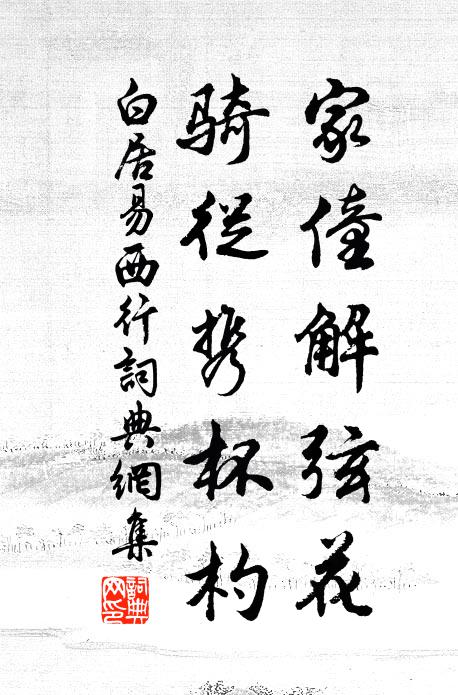 家僮解弦花
騎從携杯杓
白居易西行詞典網集
詞典
网印